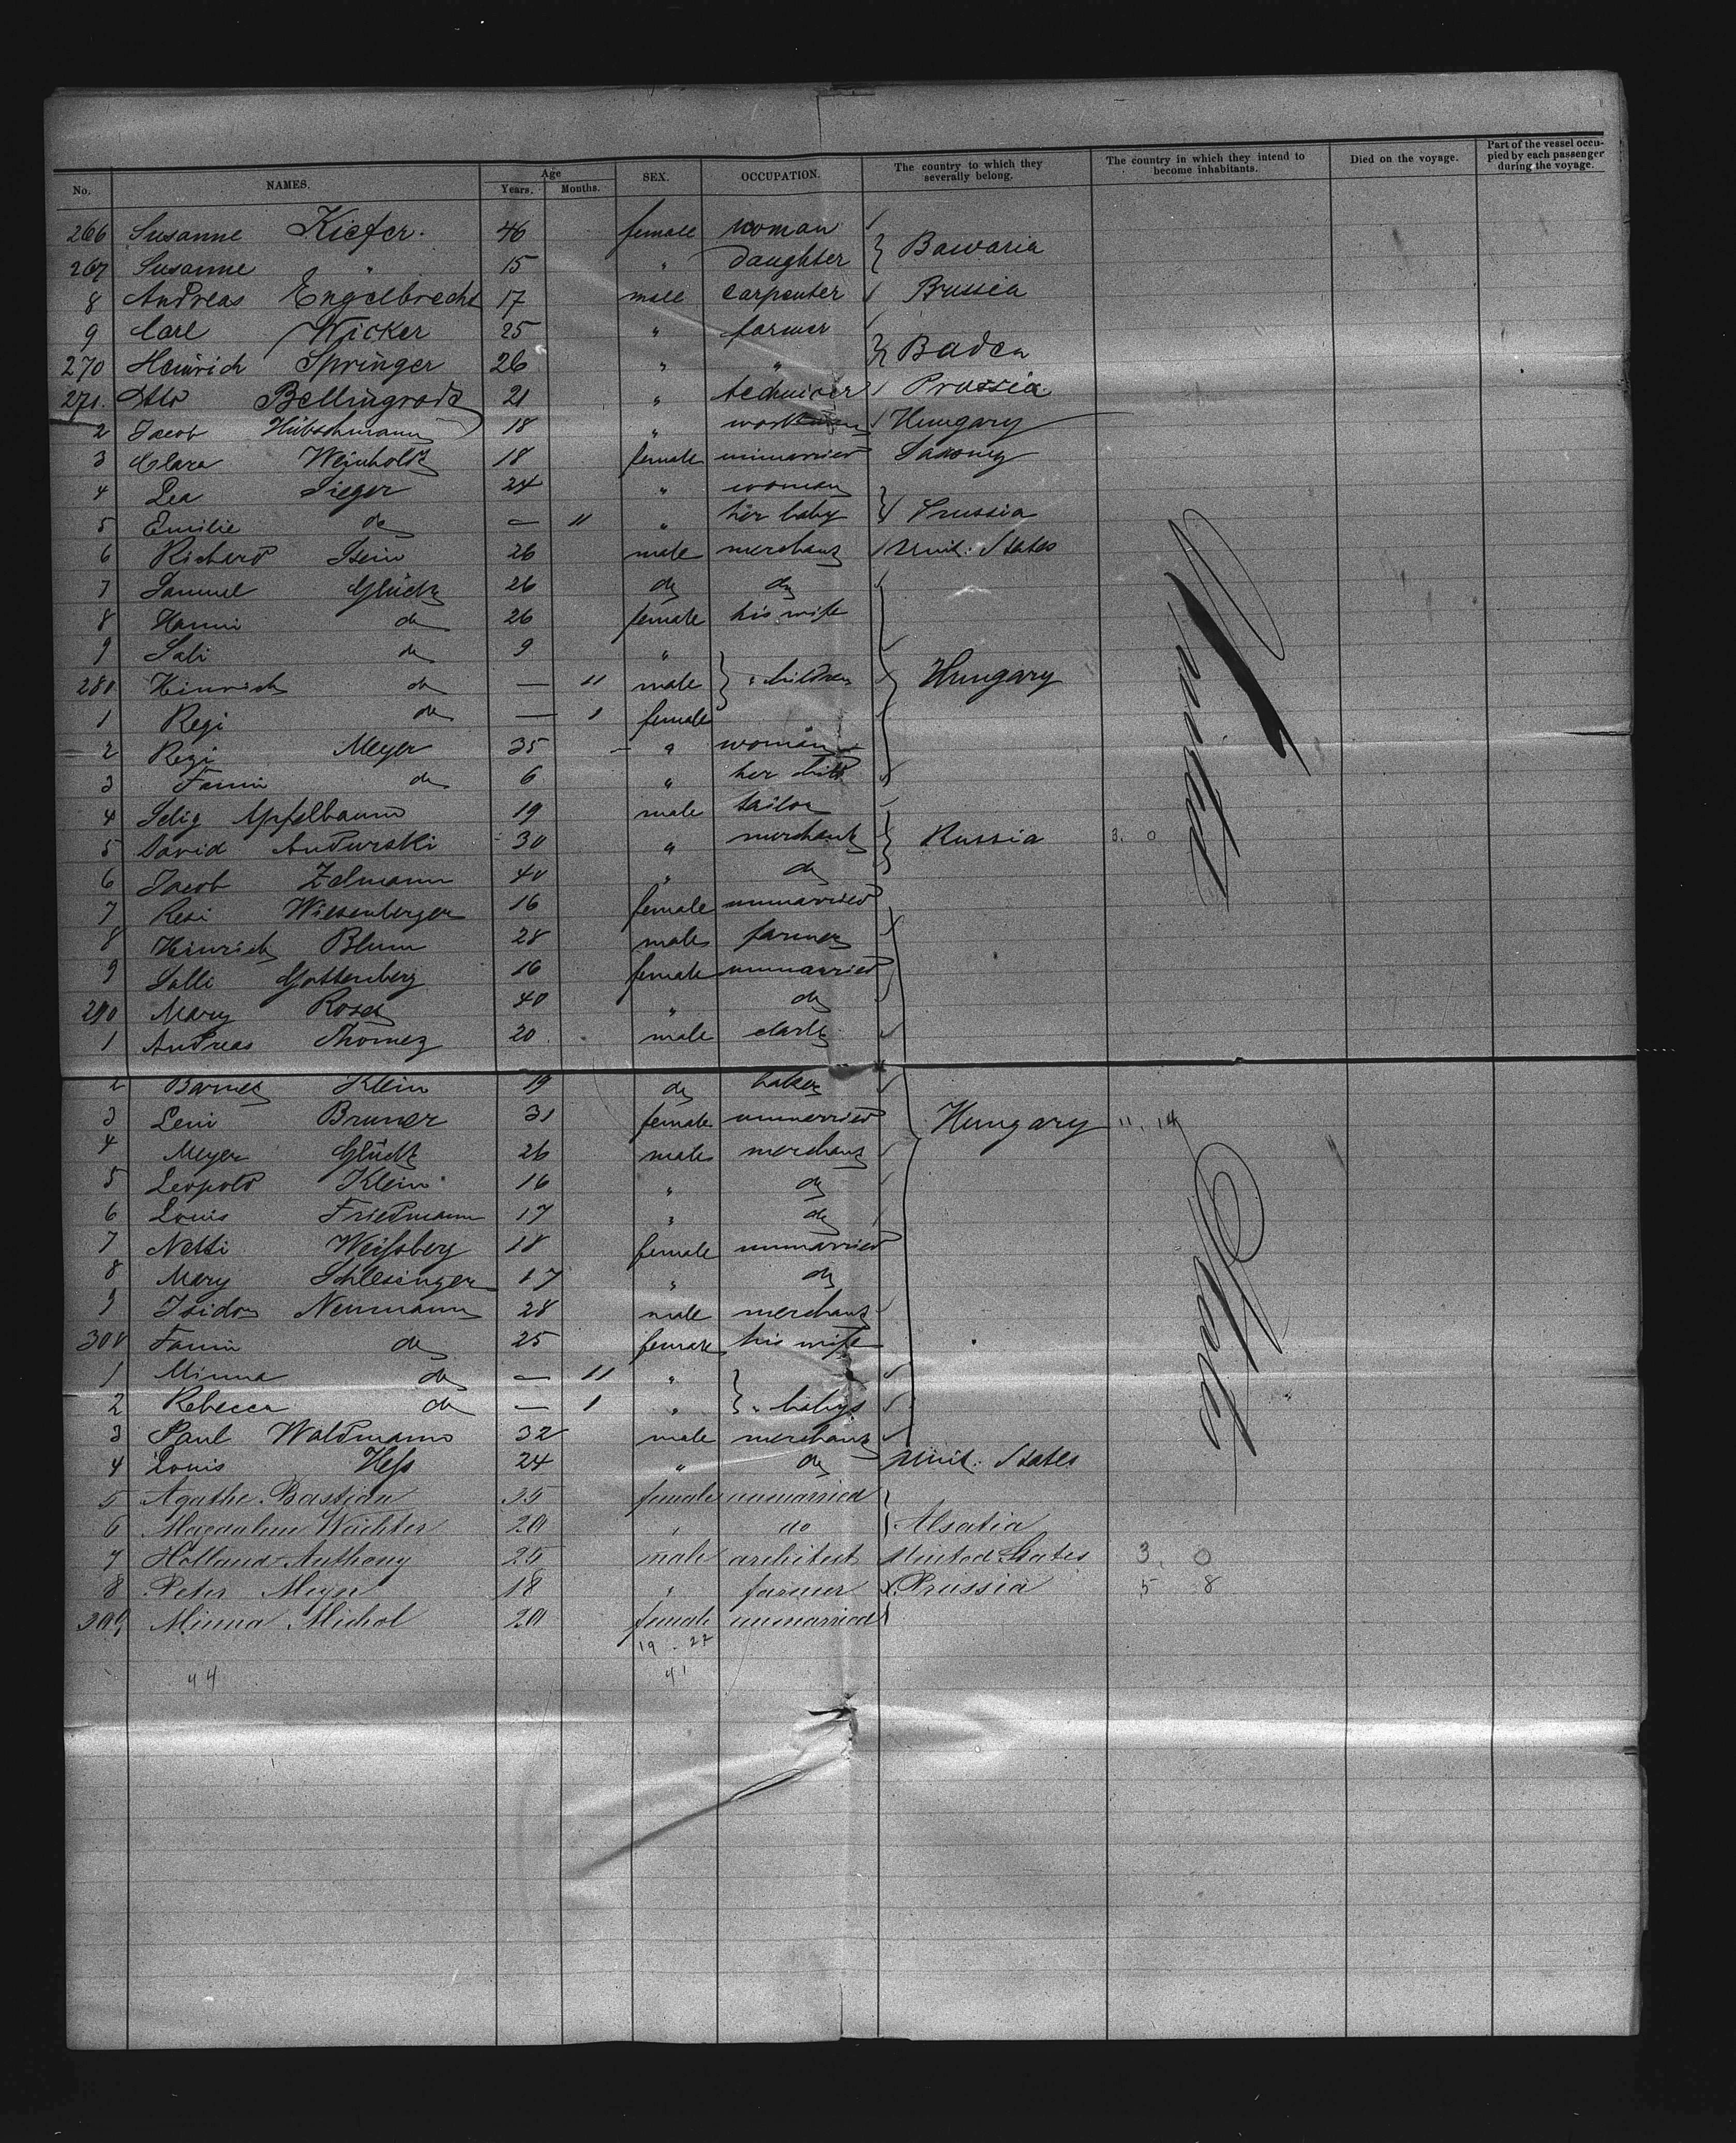 No. NAMES. Age Years. Months. SEX. OCCUPATION. The country to which they severally belong. The country in which they intend to become inhabitants. Died on the voyage. Part of the vessel occupied by each passenger during the voyage.
266 Susanne Kiefer. 46 female woman
267 Susanne " 15 " Daughter } Bawaria
8 Andreas Engelbrecht 17 male carpenter Prussia
9 Carl Wicker 25 " farmer
270 Heinrich Springer 26 " " } Baden
271. Otto Bellingrodt 21 " techniker Prussia
2 Jacob Hübschmann 18 " workman Hungary
3 Clara Weinholdt 18 female unmarried Saxony
4 Lea Sieger 24 " woman
5 Emilie do — 11 " her baby } Prussia
6 Richard Isein 26 male merchant Unit: States
7 Samuel Glück 26 do do
8 Hanni do 26 female his wife
9 Sali do 9 "
280 Heinrich do — 11 male } " children Hungary
1 Regi do — 1 female
2 Regi Meyer 35 — " woman
3 Fanni do 6 " her child
4 Selig Apfelbaum 19 male tailor
5 David Andurski 30 " merchant } Russia 3. 0
6 Jacob Zelmann 40 " do
7 Resi Wiesenberger 16 female unmarried
8 Heinrich Blum 28 male farmer
9 Salli Gottenberg 16 female unmarried
290 Mary Rosa 40 " do
1 Andreas Thomez 20 male clark
2 Barnet Klein 19 do baker
3 Leni Bruner 31 female unmerried } Hungary 11. 14
4 Meyer Glück 26 male merchant
5 Leopold Klein 16 " do
6 Louis Friedmann 17 " do
7 Netti Weissberg 18 female unmarried
8 Mary Schlesinger 17 " do
9 Isidor Neumann 28 male merchant
300 Fanni do 25 female his wife
1 Minna do — 11 "
2 Rebecca do — 1 " } " babys
3 Paul Waldmann 32 male merchant
4 Louis Hess 24 " do Unit: States
5 Agathe Bastian 25 female unmarried
6 Magdalene Wächter 20 " do } Alsatia
7 Holland Anthony 25 male architect United States 3. 0
8 Peter Meyn 18 " farmer Prussia 5 8
309 Minna Michol 20 female unmarried
19 - 22
44 41